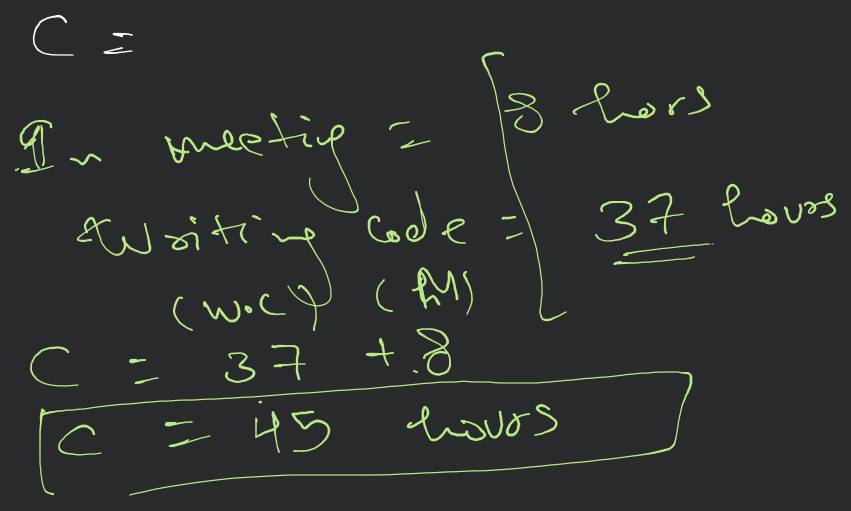 C =
In meetig = 8 hors
Writing Code = 37 hours
(W.C)
C = 37 + 8
C = 45 hours